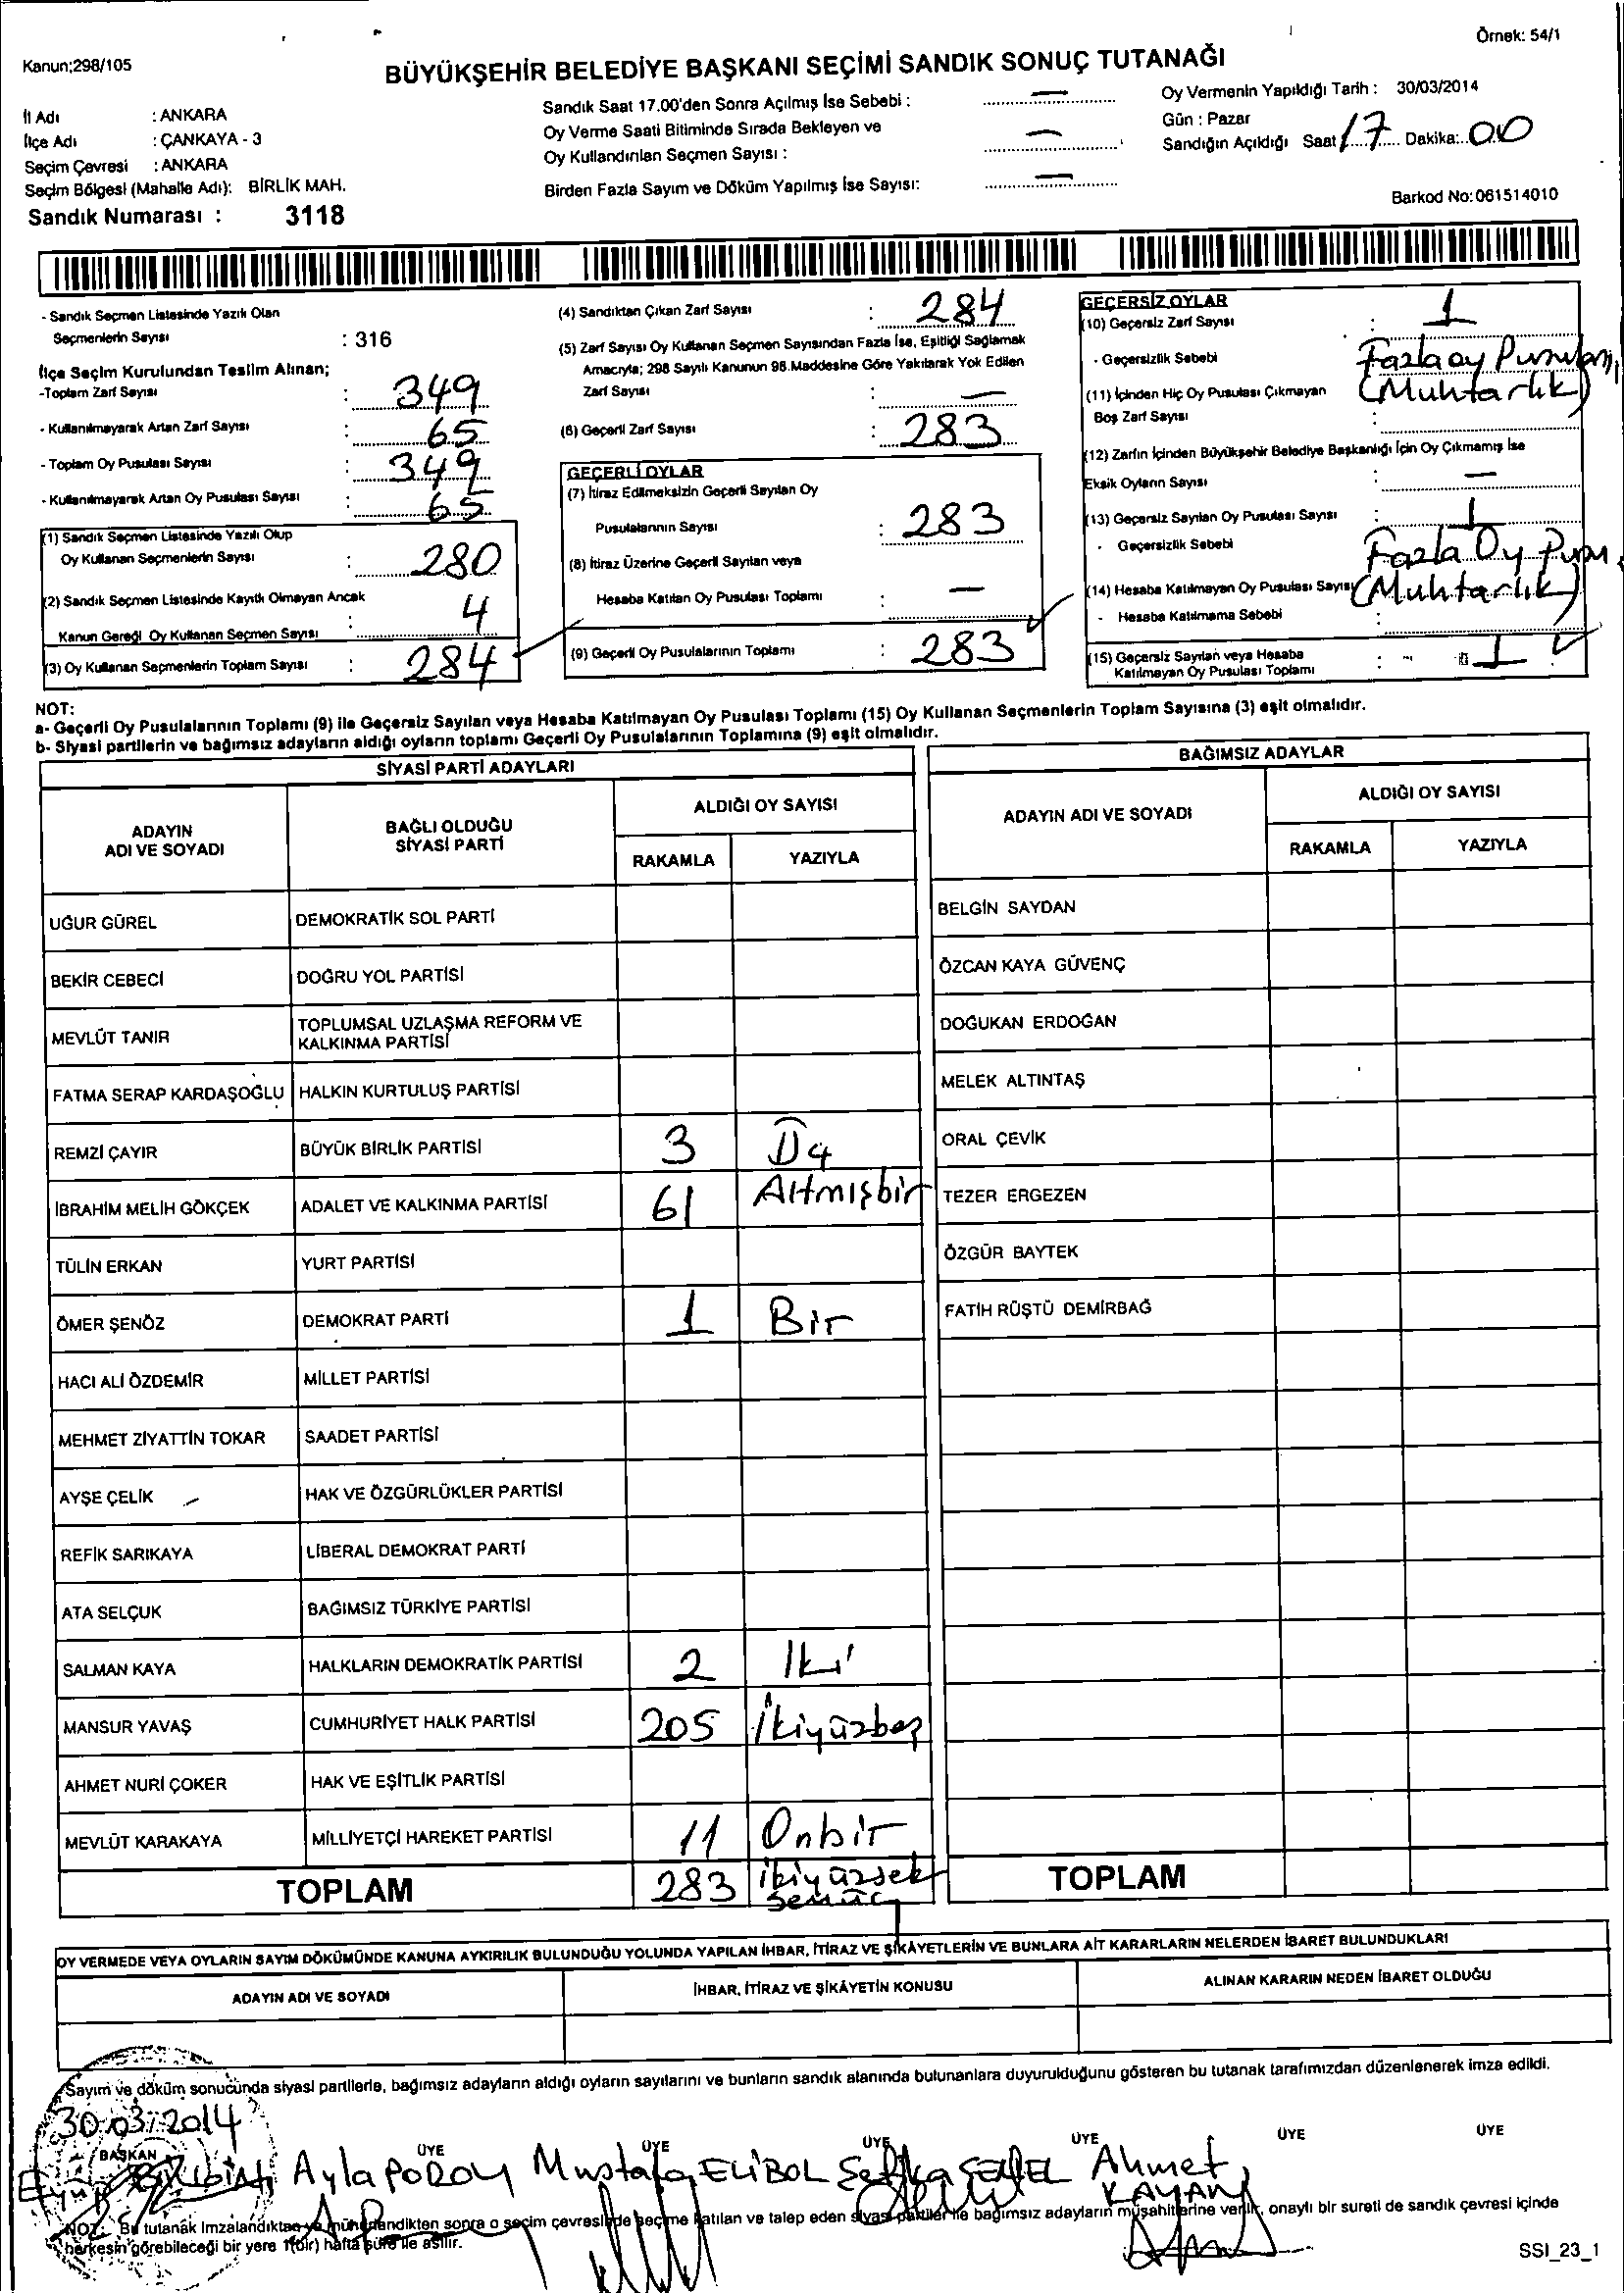 Örnek: 54/1
Kanun;298/105
BÜYÜKŞEHİR BELEDİYE BAŞKANI SEÇİMİ SANDIK SONUÇ TUTANAĞI
İl Adı : ANKARA
İlçe Adı : ÇANKAYA - 3
Seçim Çevresi : ANKARA
Seçim Bölgesi (Mahalle Adı): BİRLİK MAH.
Sandık Numarası : 3118
Sandık Saat 17.00'den Sonra Açılmış İse Sebebi : —
Oy Verme Saati Bitiminde Sırada Bekleyen ve
Oy Kullandırılan Seçmen Sayısı : —
Birden Fazla Sayım ve Döküm Yapılmış İse Sayısı: —
Oy Vermenin Yapıldığı Tarih : 30/03/2014
Gün : Pazar
Sandığın Açıldığı Saat 17 Dakika: 00
Barkod No:061514010
- Sandık Seçmen Listesinde Yazılı Olan
Seçmenlerin Sayısı : 316
İlçe Seçim Kurulundan Teslim Alınan;
-Toplam Zarf Sayısı : 349
- Kullanılmayarak Artan Zarf Sayısı : 65
- Toplam Oy Pusulası Sayısı : 349
- Kullanılmayarak Artan Oy Pusulası Sayısı : 65
(1) Sandık Seçmen Listesinde Yazılı Olup
Oy Kullanan Seçmenlerin Sayısı : 280
(2) Sandık Seçmen Listesinde Kayıtlı Olmayan Ancak
Kanun Gereği Oy Kullanan Seçmen Sayısı : 4
(3) Oy Kullanan Seçmenlerin Toplam Sayısı : 284
(4) Sandıktan Çıkan Zarf Sayısı : 284
(5) Zarf Sayısı Oy Kullanan Seçmen Sayısından Fazla İse, Eşitliği Sağlamak
Amacıyla; 298 Sayılı Kanunun 98.Maddesine Göre Yakılarak Yok Edilen
Zarf Sayısı : —
(6) Geçerli Zarf Sayısı : 283
GEÇERLİ OYLAR
(7) İtiraz Edilmeksizin Geçerli Sayılan Oy
Pusulalarının Sayısı : 283
(8) İtiraz Üzerine Geçerli Sayılan veya
Hesaba Katılan Oy Pusulası Toplamı : —
(9) Geçerli Oy Pusulalarının Toplamı : 283
GEÇERSİZ OYLAR
(10) Geçersiz Zarf Sayısı : 1
- Geçersizlik Sebebi : Fazla oy Pusulası
(Muhtarlık)
(11) İçinden Hiç Oy Pusulası Çıkmayan
Boş Zarf Sayısı :
(12) Zarfın İçinden Büyükşehir Belediye Başkanlığı İçin Oy Çıkmamış İse
Eksik Oyların Sayısı : —
(13) Geçersiz Sayılan Oy Pusulası Sayısı : 1
- Geçersizlik Sebebi : Fazla Oy Pusu
(14) Hesaba Katılmayan Oy Pusulası Sayısı (Muhtarlık)
- Hesaba Katılmama Sebebi :
(15) Geçersiz Sayılan veya Hesaba
Katılmayan Oy Pusulası Toplamı : 1
NOT:
a- Geçerli Oy Pusulalarının Toplamı (9) ile Geçersiz Sayılan veya Hesaba Katılmayan Oy Pusulası Toplamı (15) Oy Kullanan Seçmenlerin Toplam Sayısına (3) eşit olmalıdır.
b- Siyasi partilerin ve bağımsız adayların aldığı oyların toplamı Geçerli Oy Pusulalarının Toplamına (9) eşit olmalıdır.
SİYASİ PARTİ ADAYLARI
ADAYIN ADI VE SOYADI BAĞLI OLDUĞU SİYASİ PARTİ ALDIĞI OY SAYISI
RAKAMLA YAZIYLA
UĞUR GÜREL DEMOKRATİK SOL PARTİ
BEKİR CEBECİ DOĞRU YOL PARTİSİ
MEVLÜT TANIR TOPLUMSAL UZLAŞMA REFORM VE KALKINMA PARTİSİ
FATMA SERAP KARDAŞOĞLU HALKIN KURTULUŞ PARTİSİ
REMZİ ÇAYIR BÜYÜK BİRLİK PARTİSİ 3 Üç
İBRAHİM MELİH GÖKÇEK ADALET VE KALKINMA PARTİSİ 61 Altmışbir
TÜLİN ERKAN YURT PARTİSİ
ÖMER ŞENÖZ DEMOKRAT PARTİ 1 Bir
HACI ALİ ÖZDEMİR MİLLET PARTİSİ
MEHMET ZİYATTİN TOKAR SAADET PARTİSİ
AYŞE ÇELİK HAK VE ÖZGÜRLÜKLER PARTİSİ
REFİK SARIKAYA LİBERAL DEMOKRAT PARTİ
ATA SELÇUK BAĞIMSIZ TÜRKİYE PARTİSİ
SALMAN KAYA HALKLARIN DEMOKRATİK PARTİSİ 2 İki
MANSUR YAVAŞ CUMHURİYET HALK PARTİSİ 205 İkiyüzbeş
AHMET NURİ ÇOKER HAK VE EŞİTLİK PARTİSİ
MEVLÜT KARAKAYA MİLLİYETÇİ HAREKET PARTİSİ 11 Onbir
TOPLAM 283 ikiyüzsek
senüç
BAĞIMSIZ ADAYLAR
ADAYIN ADI VE SOYADI ALDIĞI OY SAYISI
RAKAMLA YAZIYLA
BELGİN SAYDAN
ÖZCAN KAYA GÜVENÇ
DOĞUKAN ERDOĞAN
MELEK ALTINTAŞ
ORAL ÇEVİK
TEZER ERGEZEN
ÖZGÜR BAYTEK
FATİH RÜŞTÜ DEMİRBAĞ
TOPLAM
OY VERMEDE VEYA OYLARIN SAYIM DÖKÜMÜNDE KANUNA AYKIRILIK BULUNDUĞU YOLUNDA YAPILAN İHBAR, İTİRAZ VE ŞİKÂYETLERİN VE BUNLARA AİT KARARLARIN NELERDEN İBARET BULUNDUKLARI
ADAYIN ADI VE SOYADI İHBAR, İTİRAZ VE ŞİKÂYETİN KONUSU ALINAN KARARIN NEDEN İBARET OLDUĞU
Sayım ve döküm sonucunda siyasi partilerle, bağımsız adayların aldığı oyların sayılarını ve bunların sandık alanında bulunanlara duyurulduğunu gösteren bu tutanak tarafımızdan düzenlenerek imza edildi.
30.03.2014
BAŞKAN ÜYE ÜYE ÜYE ÜYE ÜYE ÜYE
Ayla POROY Mustafa ELİBOL Şefika Ahmet
KAYAN
NOT: Bu tutanak İmzalandıktan ve mühürlendikten sonra o seçim çevresinde seçime katılan ve talep eden siyasi partiler ile bağımsız adayların müşahitlerine verilir, onaylı bir sureti de sandık çevresi içinde
herkesin görebileceği bir yere 1(bir) hafta süre ile asılır.
SSI_23_1